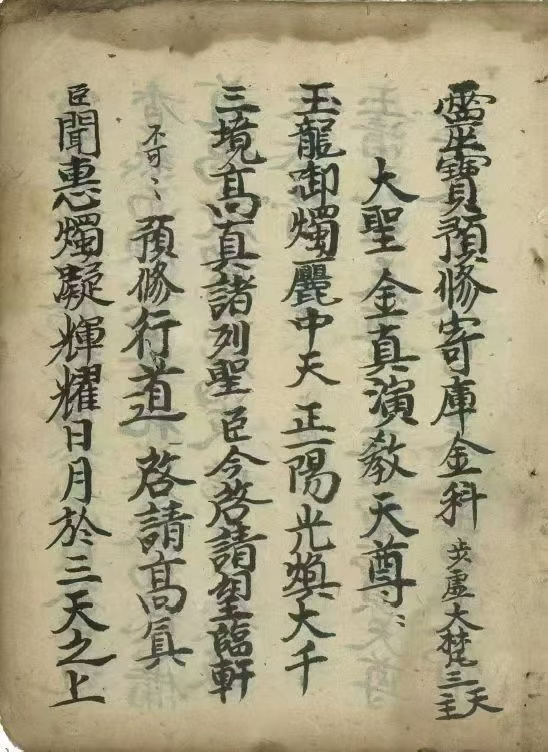 靈寶預修寄庫金科 步虛大梵三天主
大聖 金真演教天尊〻
玉龍御燭麗中天 正陽光煥大千
三境髙真諸列聖 臣今啓請望臨軒
不可〻 預修行道 啓請髙真
臣聞惠燭凝輝耀日月於三天之上